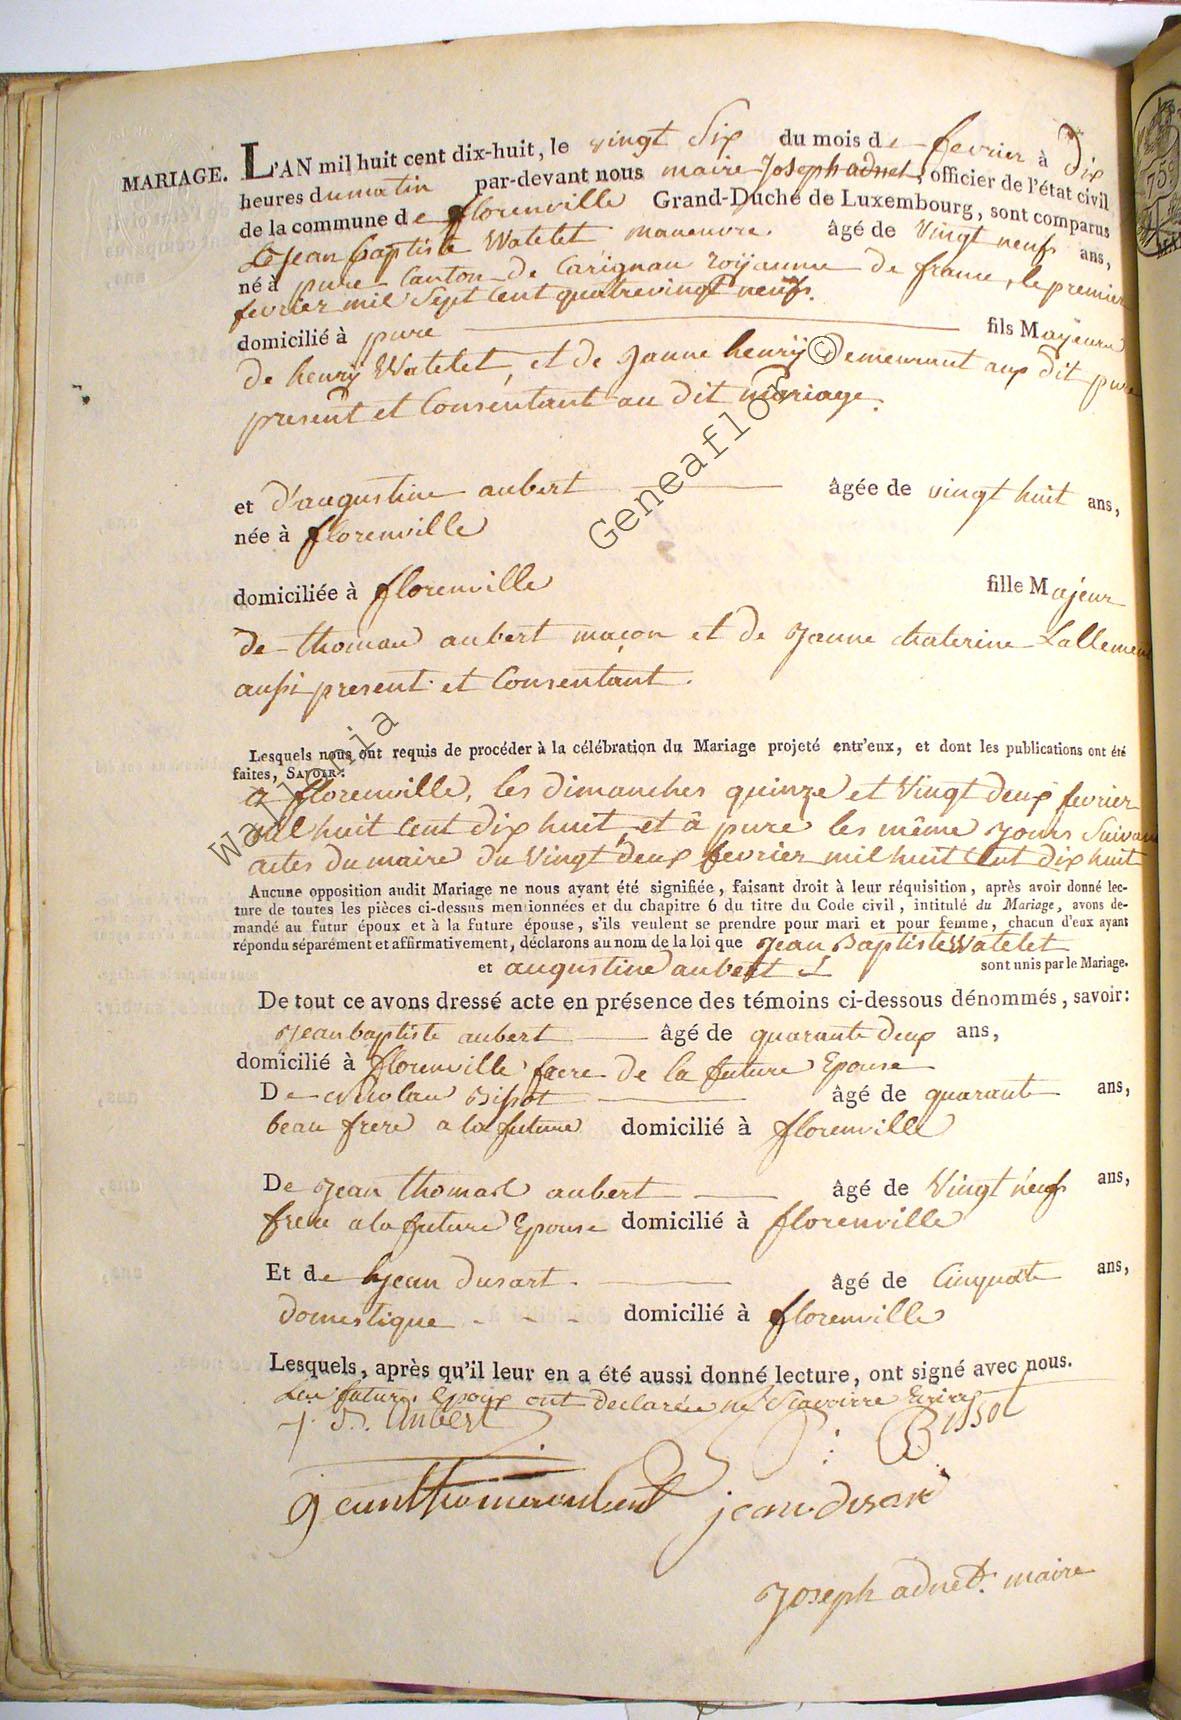 MARIAGE. L'AN mil huit cent dix-huit, le vingt Six du mois de fevrier à Dix
heures du matin par-devant nous maire Joseph adnet, officier de l'état civil
de la commune de florenville Grand-Duché de Luxembourg, sont comparus
Le Jean baptiste Watelet maneuvre. âgé de Vingt neuf ans,
né à pure Canton de Carignan royaume de france, le premier
fevrier mil Sept Cent quatrevingt neuf.
domicilié à pure fils Majeur
de henrÿ Watelet, et de Janne henrÿ Demeurant aux dit pure
present et Consentant au dit mariage.
et d'augustine aubert âgée de vingt huit ans,
née à florenville
domiciliée à florenville fille Majeur
de thomas aubert maçon et de Janne chaterine Lallement
aussi present et Consentant.
Lesquels nous ont requis de procéder à la célébration du Mariage projeté entr'eux, et dont les publications ont été
faites, SAVOIR:
a florenville, les dimanches quinze et Vingt deux fevrier
mil huit Cent Dix huit, et à pure les même Jours Suivant
actes du maire du Vingt deux fevrier mil huit Cent Dix huit
Aucune opposition audit Mariage ne nous ayant été signifiée, faisant droit à leur réquisition, après avoir donné lec-
ture de toutes les pièces ci-dessus mentionnées et du chapitre 6 du titre du Code civil, intitulé du Mariage, avons de-
mandé au futur époux et à la future épouse, s'ils veulent se prendre pour mari et pour femme, chacun d'eux ayant
répondu séparément et affirmativement, déclarons au nom de la loi que Jean Baptiste Watelet
et augustine aubert sont unis par le Mariage.
De tout ce avons dressé acte en présence des témoins ci-dessous dénommés, savoir:
Jean baptiste aubert âgé de quarante deux ans,
domicilié à florenville frere de la future Epouse
De Nicolas Bissot âgé de quarante ans,
beau frere a la future domicilié à florenville
De Jean thomas aubert âgé de Vingt neuf ans,
frere a la future Epouse domicilié à florenville
Et de Jean dusart. âgé de Cinquate ans,
domestique - - - domicilié à florenville
Lesquels, après qu'il leur en a été aussi donné lecture, ont signé avec nous.
Les futurs Epoux ont declarée ne Scavoirre Ecrire
J. B. Aubert Bissot
jean thomas aubert jean dusart
Joseph adnet. maire
Wallonia Geneaflor ©